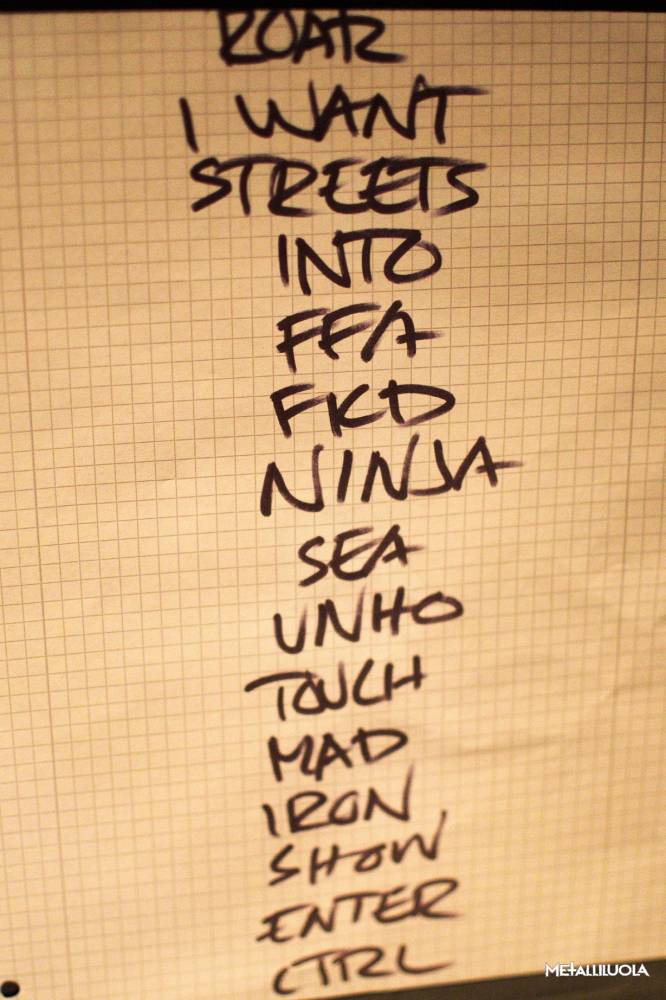 ROAR
I WANT
STREETS
INTO
FFA
FKD
NINJA
SEA
UNHO
TOUCH
MAD
IRON
SHOW
ENTER
CTRL
METALLILUOLA